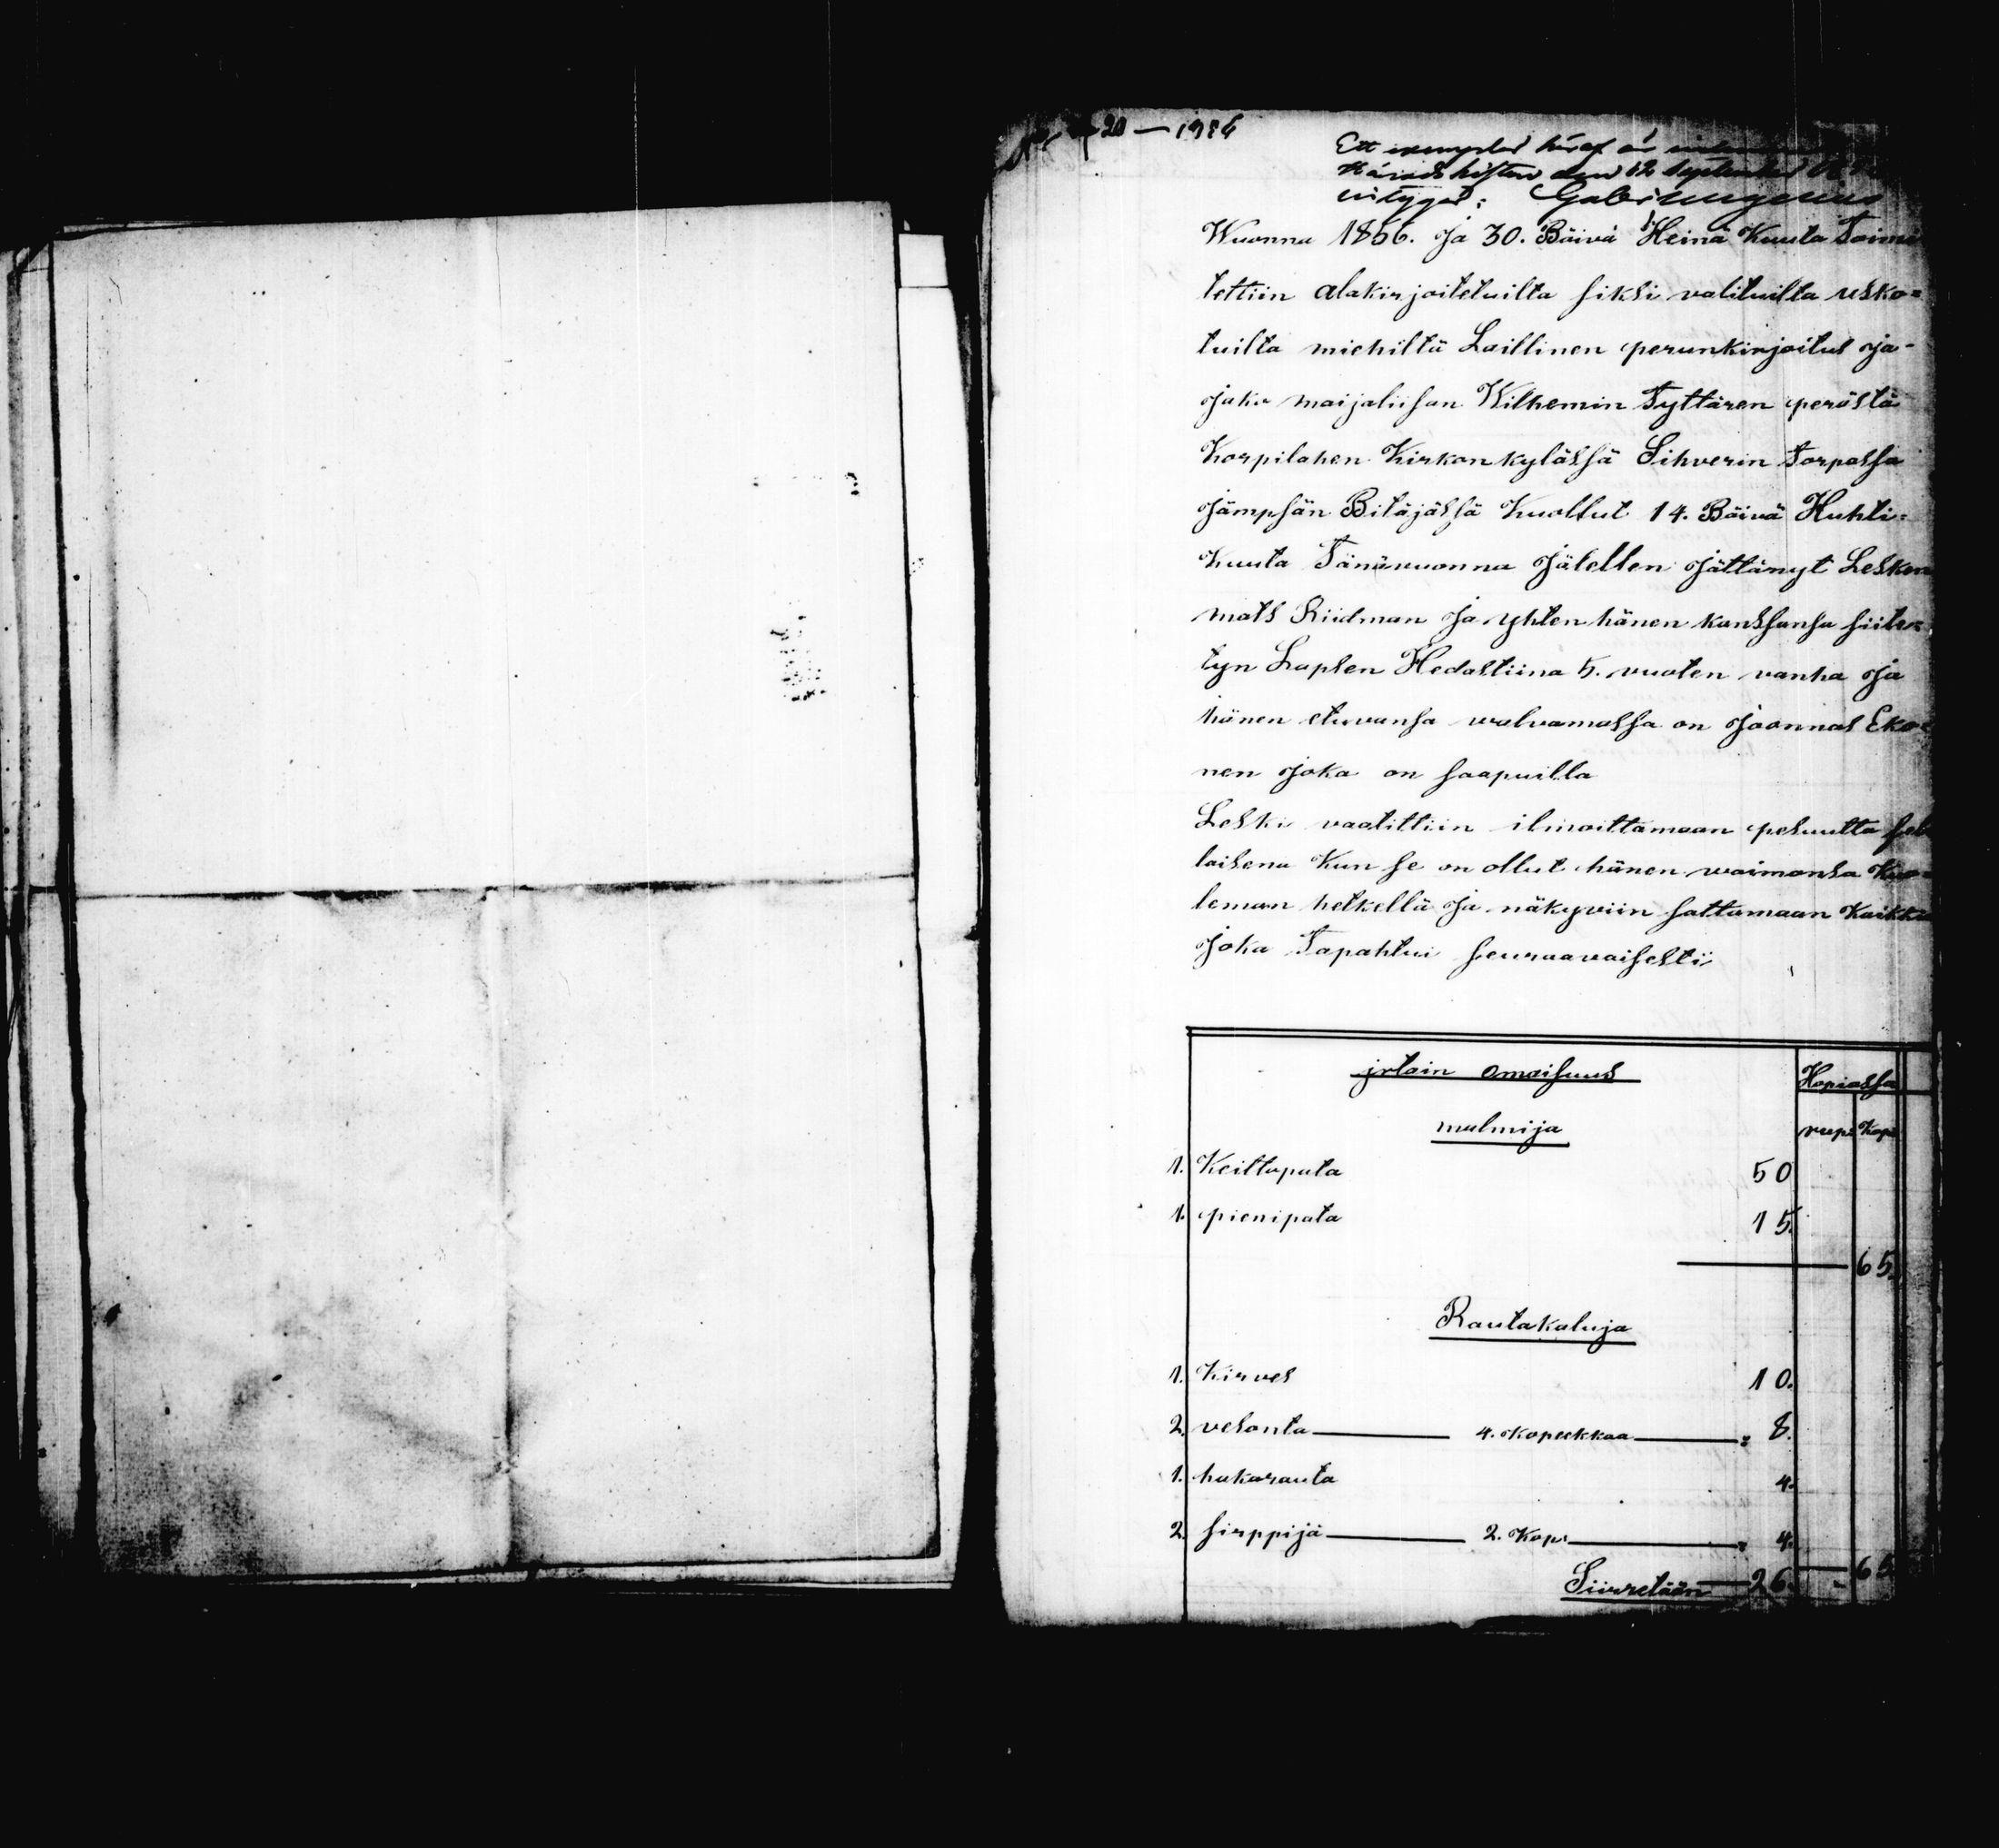 20 — 1986
Ett exemplar häraf är
Häradskistan den 12 September
intygas:
Wuonna 1866. ja 30. Bäivä Heinä Kuuta Toimi
tettiin alakirjoitetuilta siksi valituilta usko=
tuilta miehiltä Laillinen perunkirjoitus ja-
jako maijaliisan Wilhemin Tyttären perästä
Korpilahen Kirkon kylässä Sihverin Torpassa
jämpsän Bitäjässä Kuollut 14. Bäivä Huhti=
Kuuta Tänävuonna jälellen jättänyt Lesken
mats Riidman ja yhten hänen kanssansa siite=
tyn Lapsen Hedastiina 5. vuoten vanha ja
hänen etuvansa valvomassa on joonnas Eko=
nen joka on saapuilla
Leski vaatittiin ilmoittamaan pesuutta sel
laisena Kun se on ollut hänen vaimonsa Kuo=
leman hetkellä ja näkyviin sattamaan Kaikki
joka Tapahtui seuraavaisesti:
jrtain omaisuus Hopiassa
malmija rup: Kop:
1. Keittopata 50
1. pienipata 15.
65.
Rautakaluja
1. Kirves 10.
2. vesonta 4. kopeekkaa = 8.
1. hakorauta 4.
2. sirppijä 2. Kop: = 4.
Siirretään 26. — 65